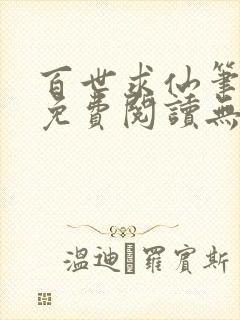 百世求仙筆
免費閱讀無
溫迪·羅賓斯